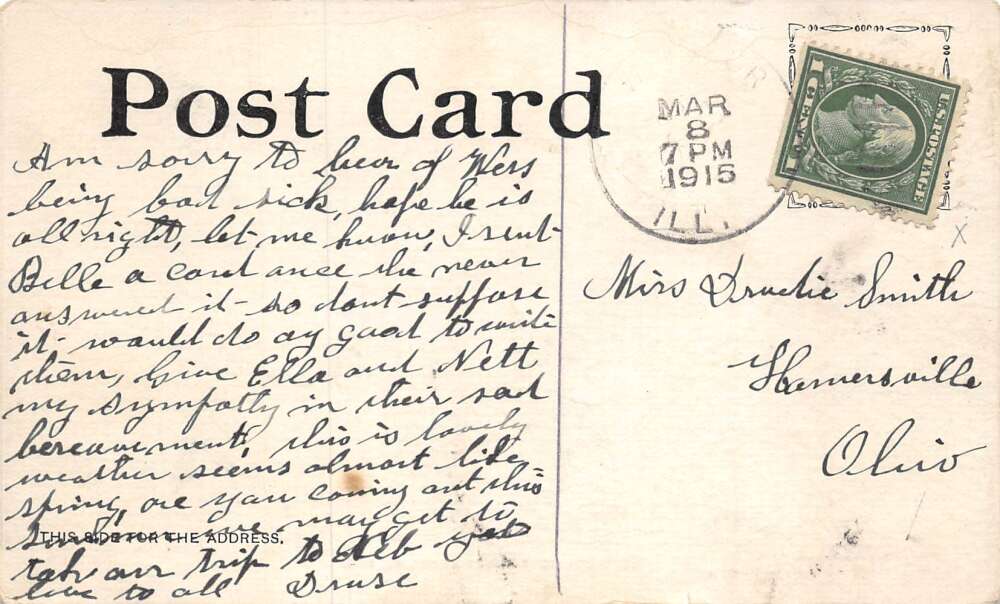 Post Card
Am sorry to hear of Wess
being bad sick, hope he is
all right, let me know, I sent
Belle a card ance she never
answered it - so dont suppose
it - would do ay good to write
them, Give Ella and Nett
my sympathy in their sad
bereavement, this is lovely
weather seems almost like
spring, are you coming out this
summer we may get to
take our trip to Neb yet
love to all Druse
THIS SIDE FOR THE ADDRESS.
MAR
8
7 PM
1915
ILL.
U.S. POSTAGE
Miss Drucie Smith
Hamersville
Ohio
X